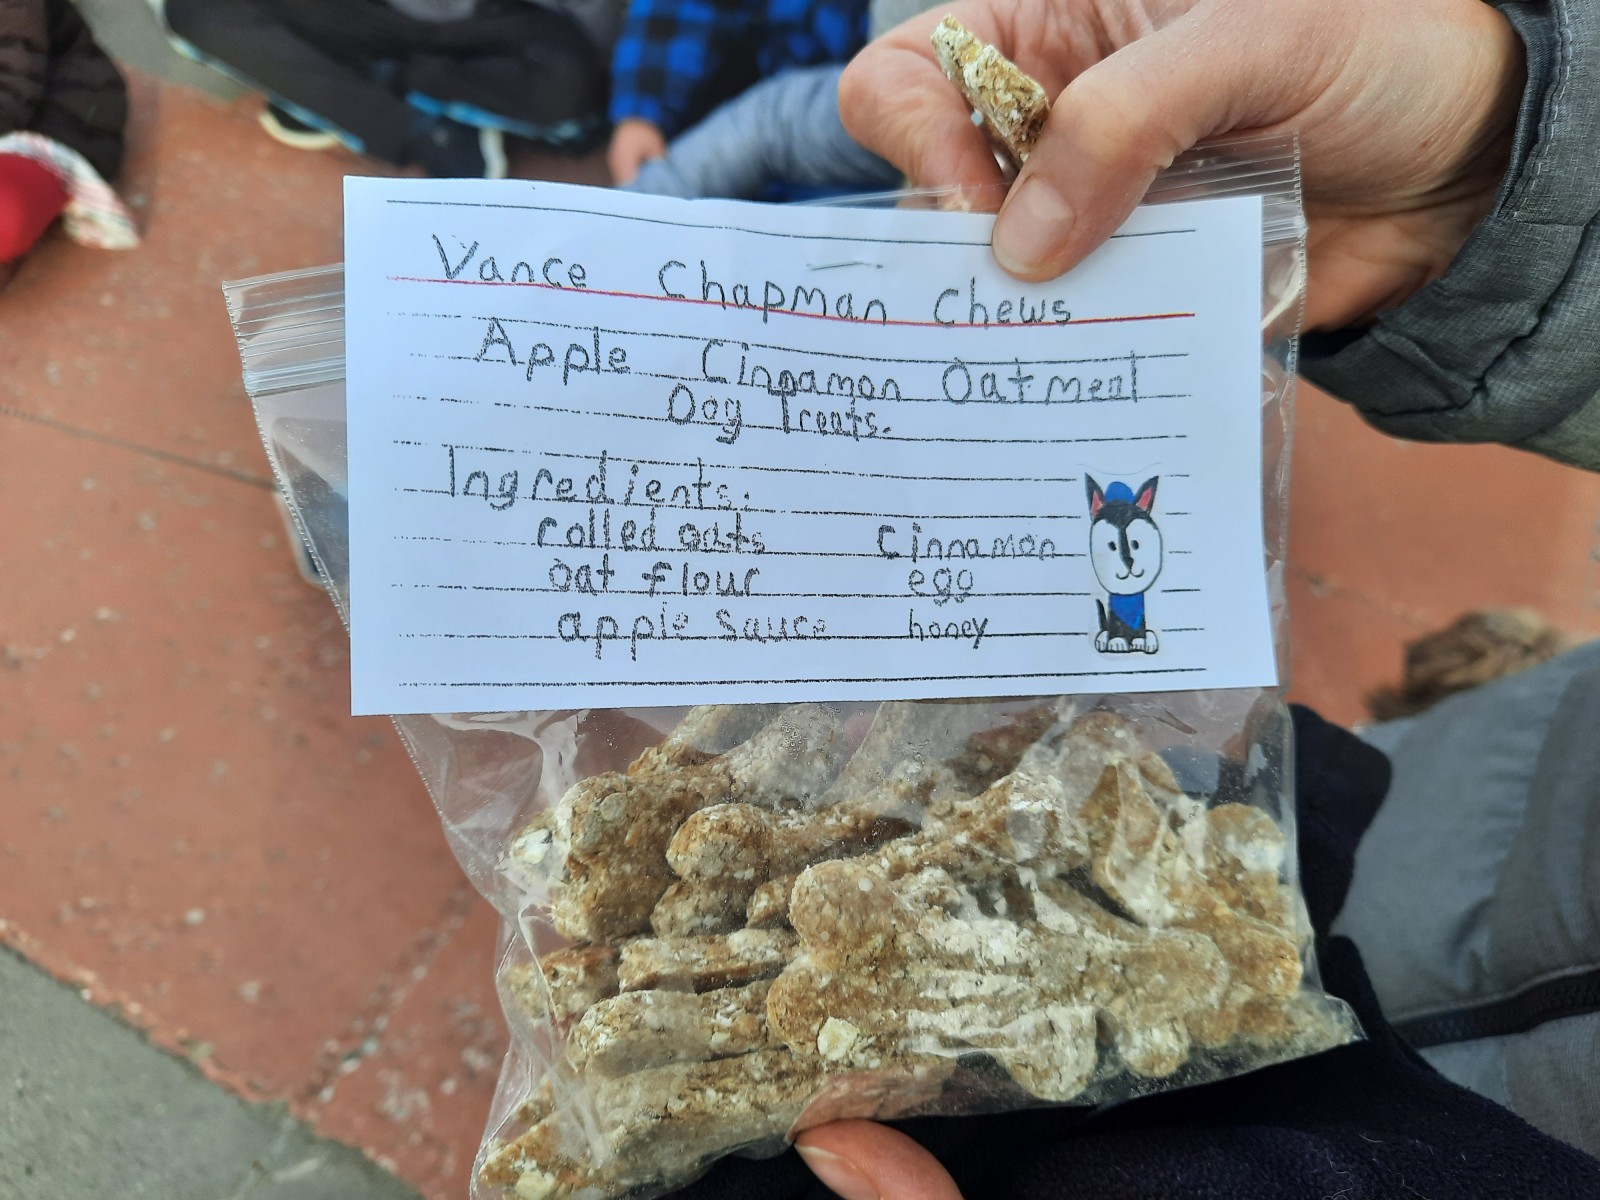 Vance Chapman Chews
Apple Cinnamon Oatmeal
Dog Treats.
Ingredients:
rolled oats Cinnamon
oat flour egg
apple sauce honey